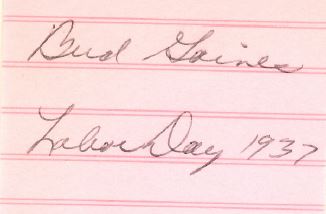 Bud Gaines
Labor Day 1937